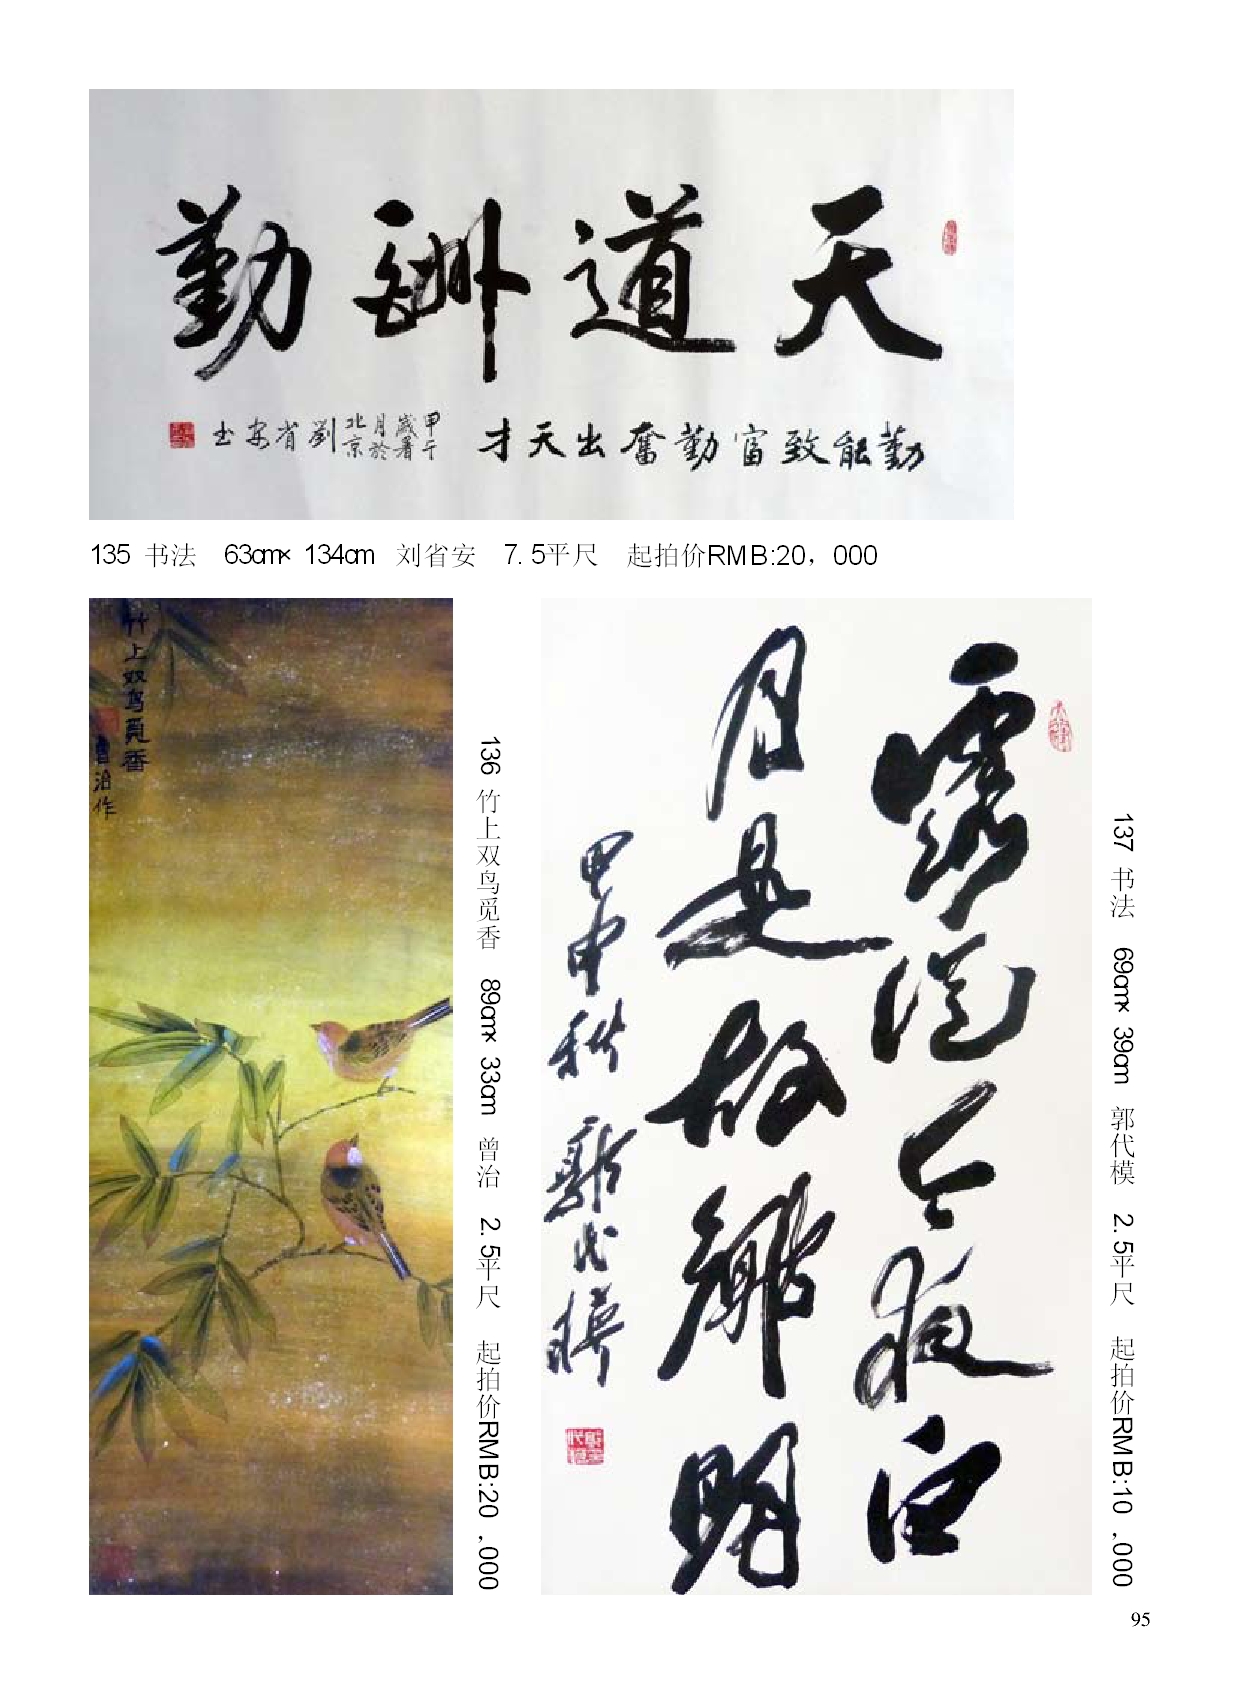 天道酬勤
勤能致富勤奮出天才
甲午
歲暑
月於
北京
劉省安书
135 书法 63cm×134cm 刘省安 7.5平尺 起拍价RMB:20，000
竹上双鸟觅香
曾治作
136 竹上双鸟觅香 89cm×33cm 曾治 2.5平尺 起拍价RMB:20,000
露從今夜白
月是故鄉明
甲申秋 郭代模
137 书法 69cm×39cm 郭代模 2.5平尺 起拍价RMB:10,000
95